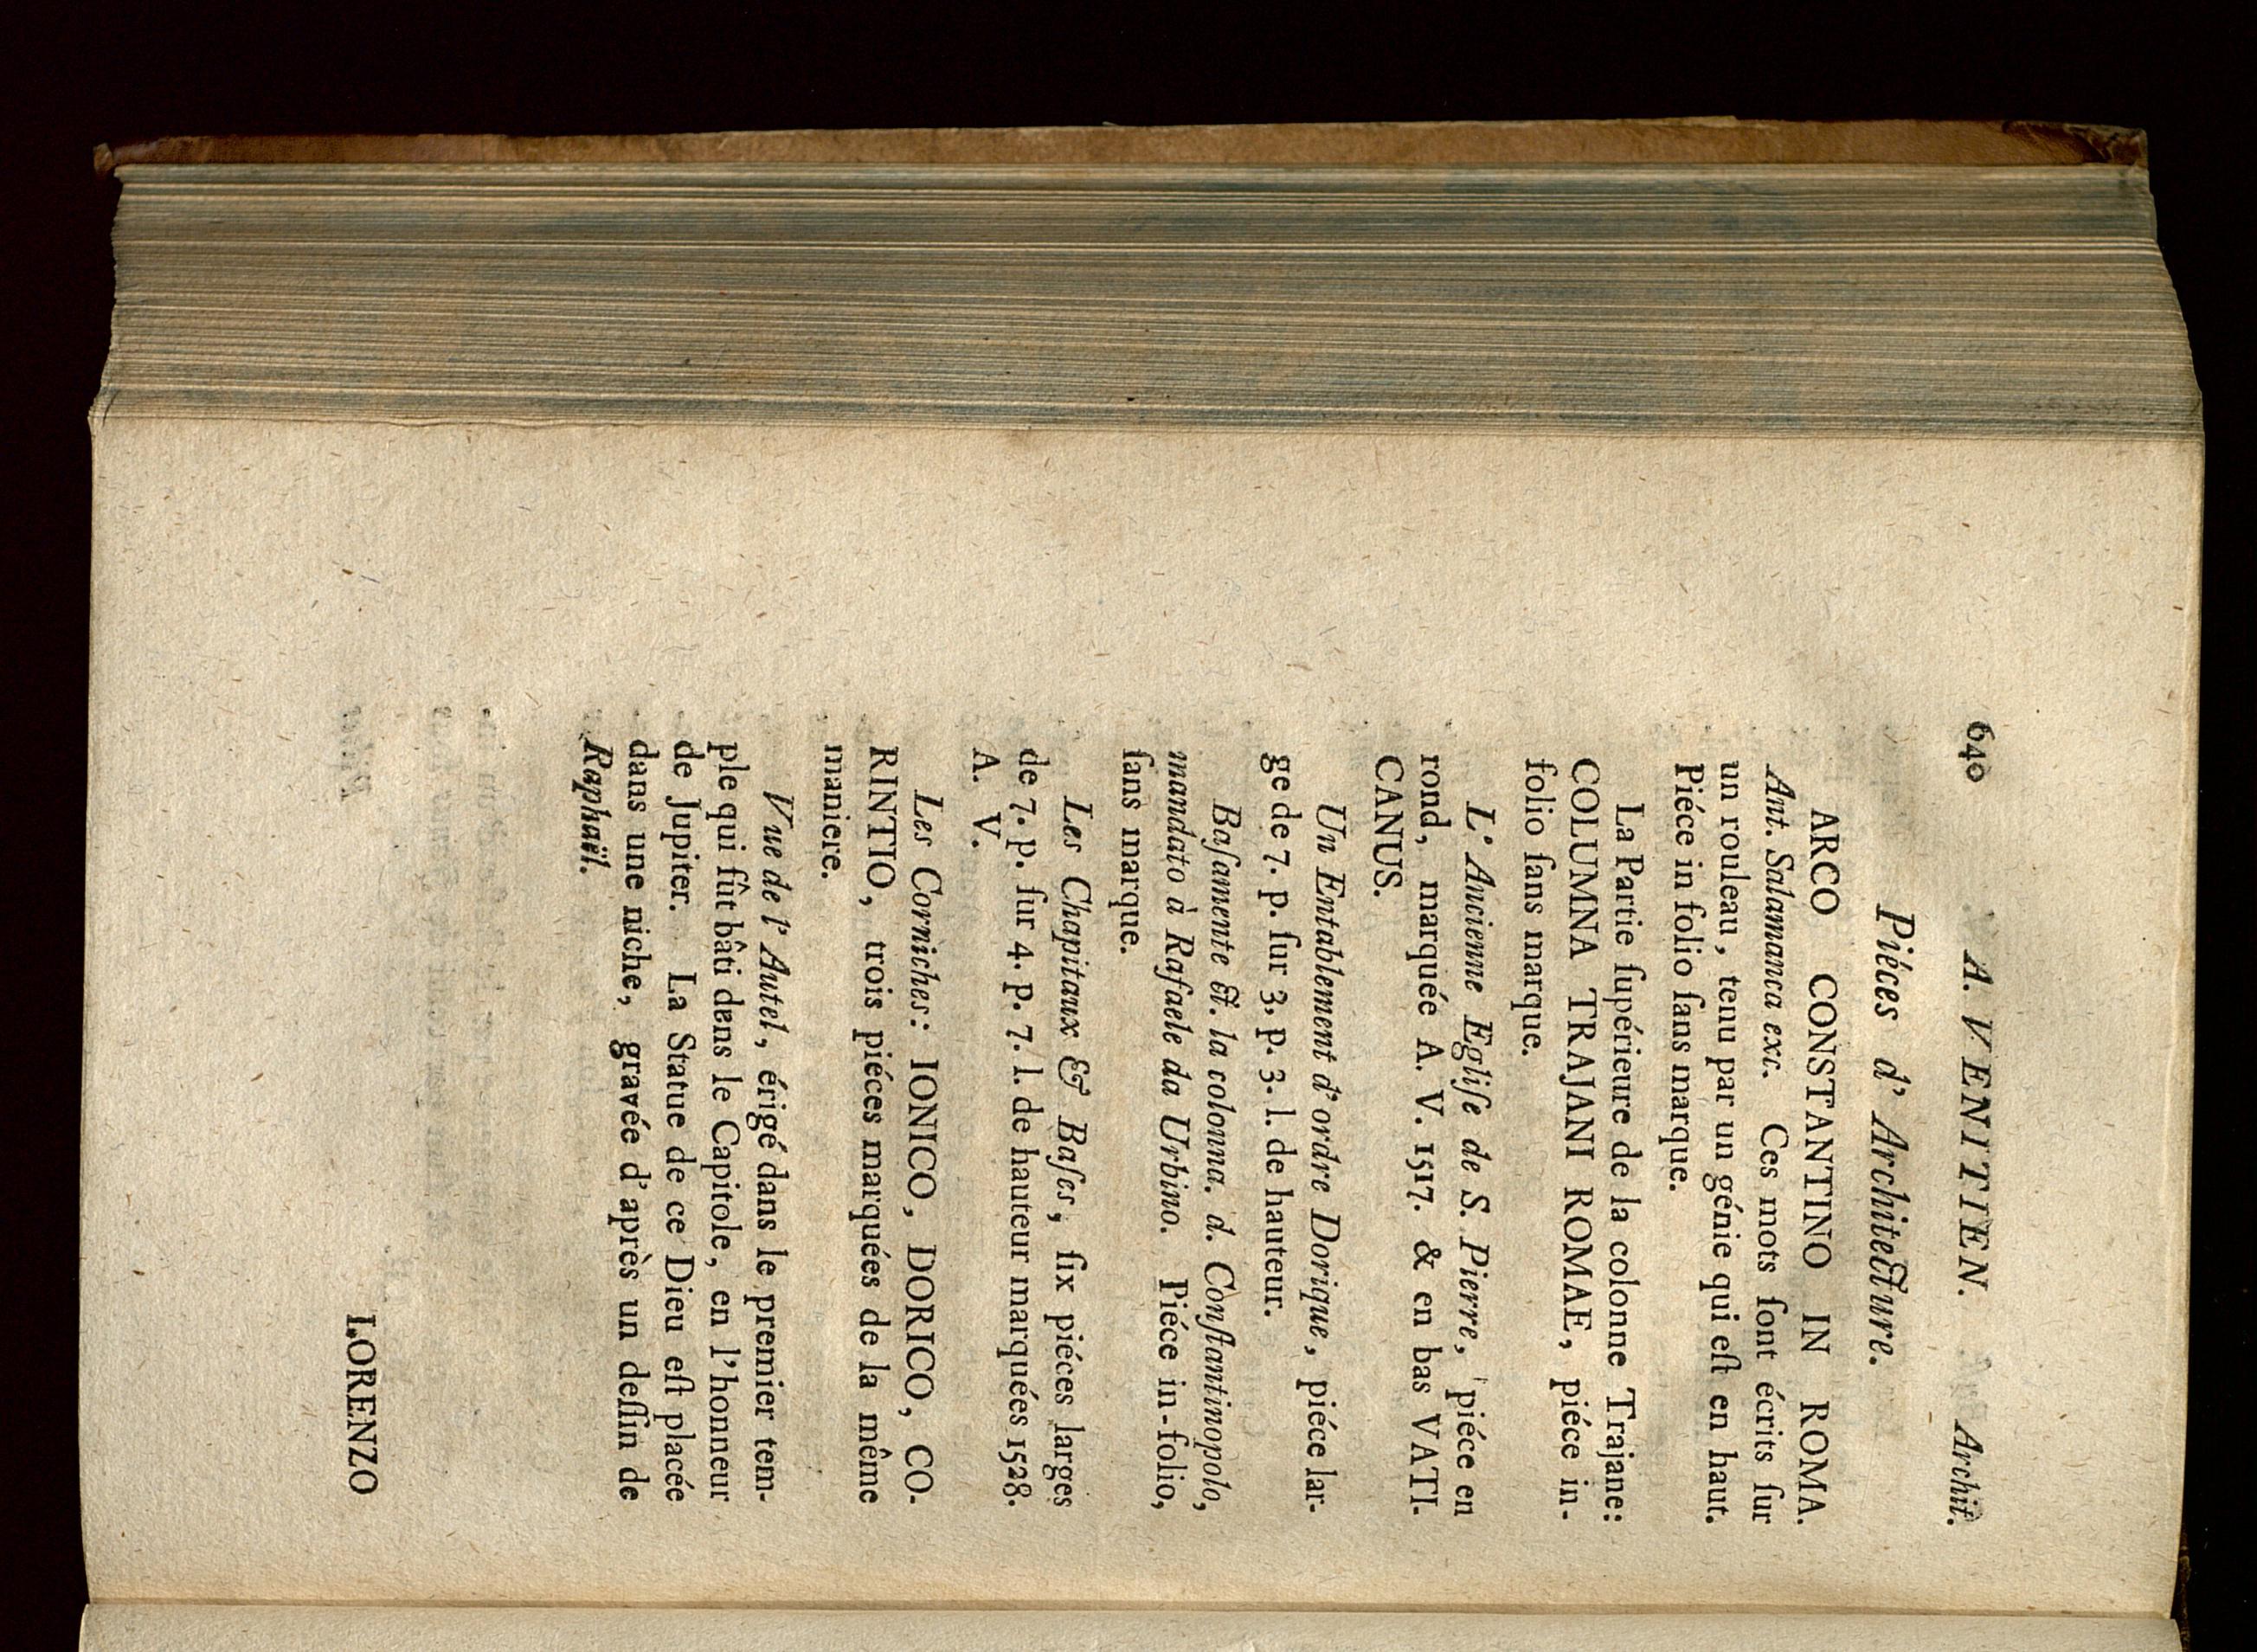 640 A. VENITIEN. Archit.
Piéces d' Architecture.
ARCO CONSTANTINO IN ROMA.
Ant. Salamanca exc. Ces mots ſont écrits ſur
un rouleau, tenu par un génie qui eſt en haut.
Piéce in folio ſans marque.
La Partie ſupérieure de la colonne Trajane:
COLUMNA TRAJANI ROMAE, piéce in-
folio ſans marque.
L' Ancienne Egliſe de S. Pierre, piéce en
rond, marquée A. V. 1517. & en bas VATI-
CANUS.
Un Entablement d'ordre Dorique, piéce lar-
ge de 7. p. ſur 3, p. 3. l. de hauteur.
Baſamente &. la colonna. d. Conſtantinopolo,
mandato à Rafaele da Urbino. Piéce in-folio,
ſans marque.
Les Chapitaux & Baſes, ſix piéces larges
de 7. p. ſur 4. p. 7. l. de hauteur marquées 1528.
A. V.
Les Corniches: IONICO, DORICO, CO-
RINTIO, trois piéces marquées de la même
maniere.
Vue de l' Autel, érigé dans le premier tem-
ple qui fût bâti dens le Capitole, en l'honneur
de Jupiter. La Statue de ce Dieu eſt placée
dans une niche, gravée d'après un deſſin de
Raphaël.
LORENZO